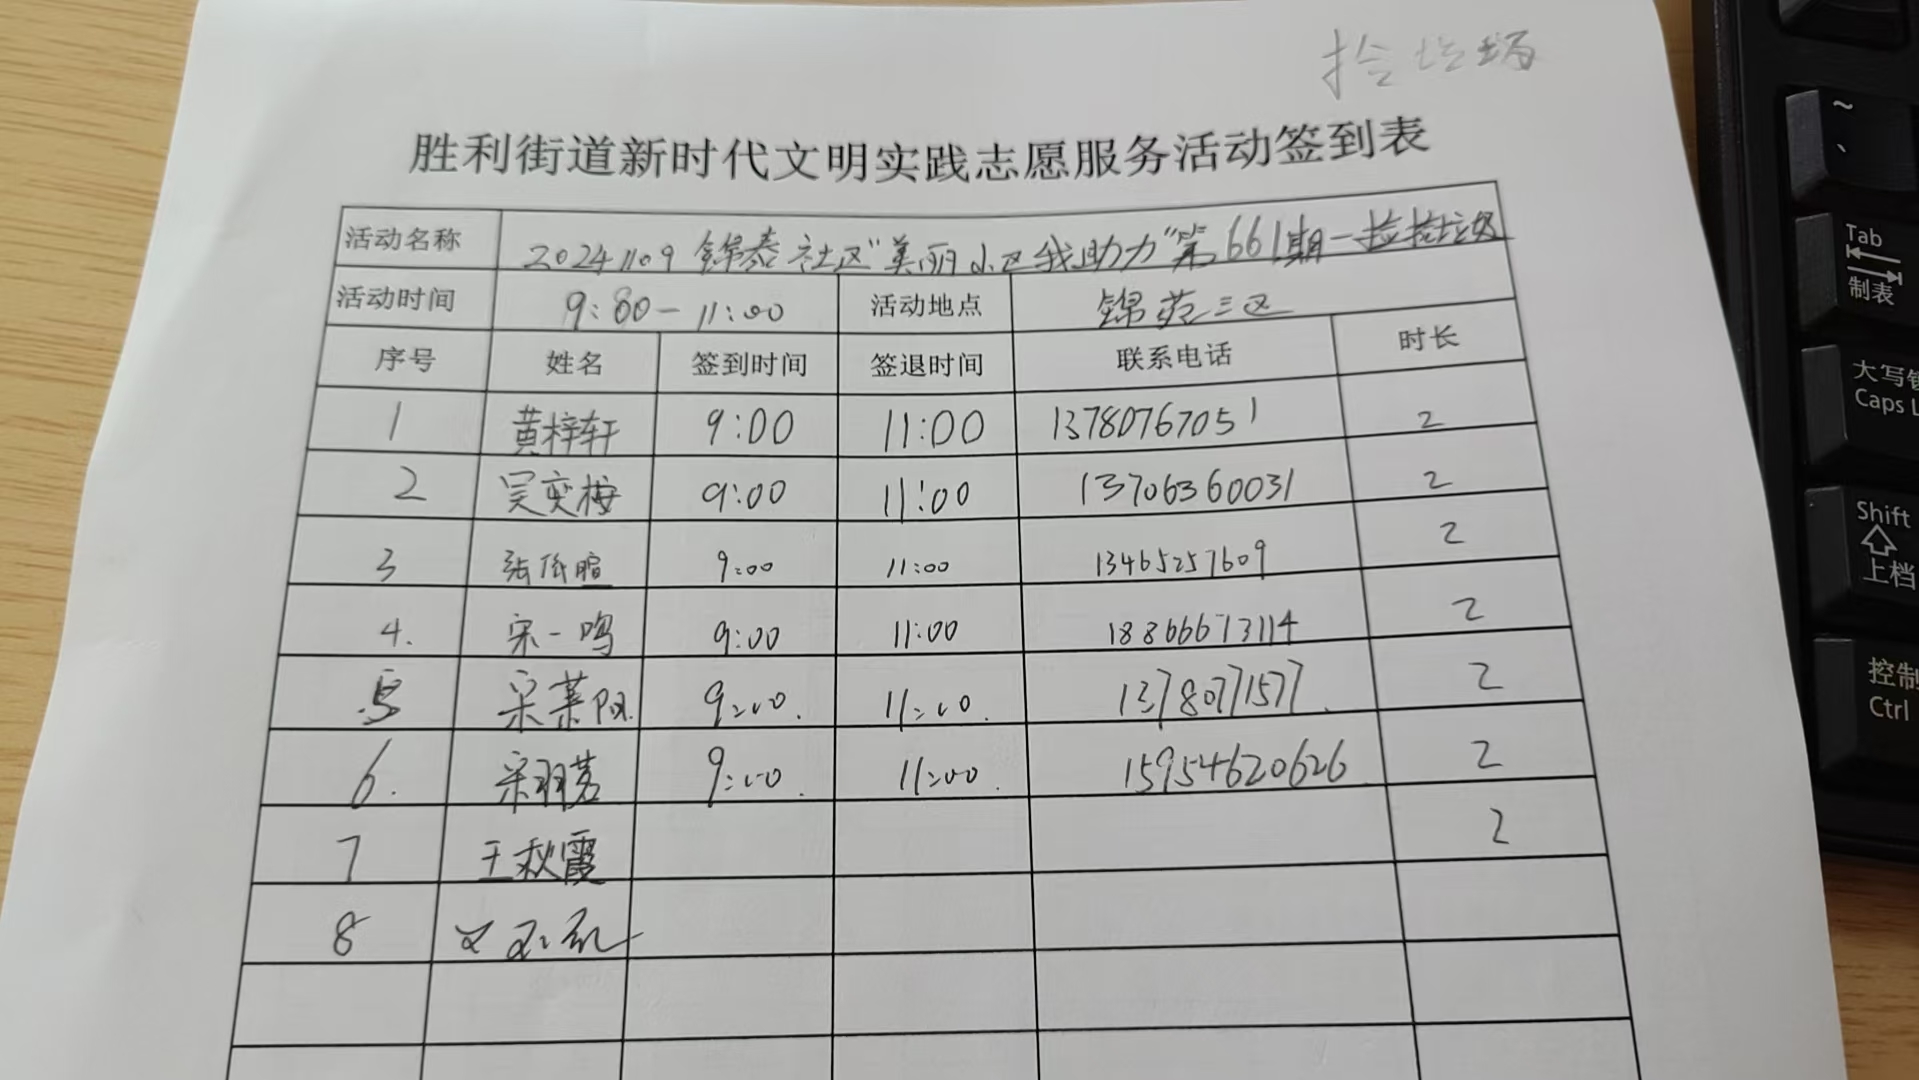 捡垃圾
胜利街道新时代文明实践志愿服务活动签到表
活动名称 20241109 锦泰社区"美丽小区我助力"第661期一捡拾垃圾
活动时间 9:00-11:00 活动地点 锦苑三区
序号 姓名 签到时间 签退时间 联系电话 时长
1 黄梓轩 9:00 11:00 13780767051 2
2 吴奕桉 9:00 11:00 13706360031 2
3 张依暄 9:00 11:00 13465257609 2
4. 宋一鸣 9:00 11:00 18866673114 2
5 宋莱阳. 9:00. 11:00. 13780771577. 2
6. 宋羽茗 9:00. 11:00. 15954620626 2
7 王秋霞 2
8
~ 、
Tab
制表
Caps L
Shift
上档
控制
Ctrl